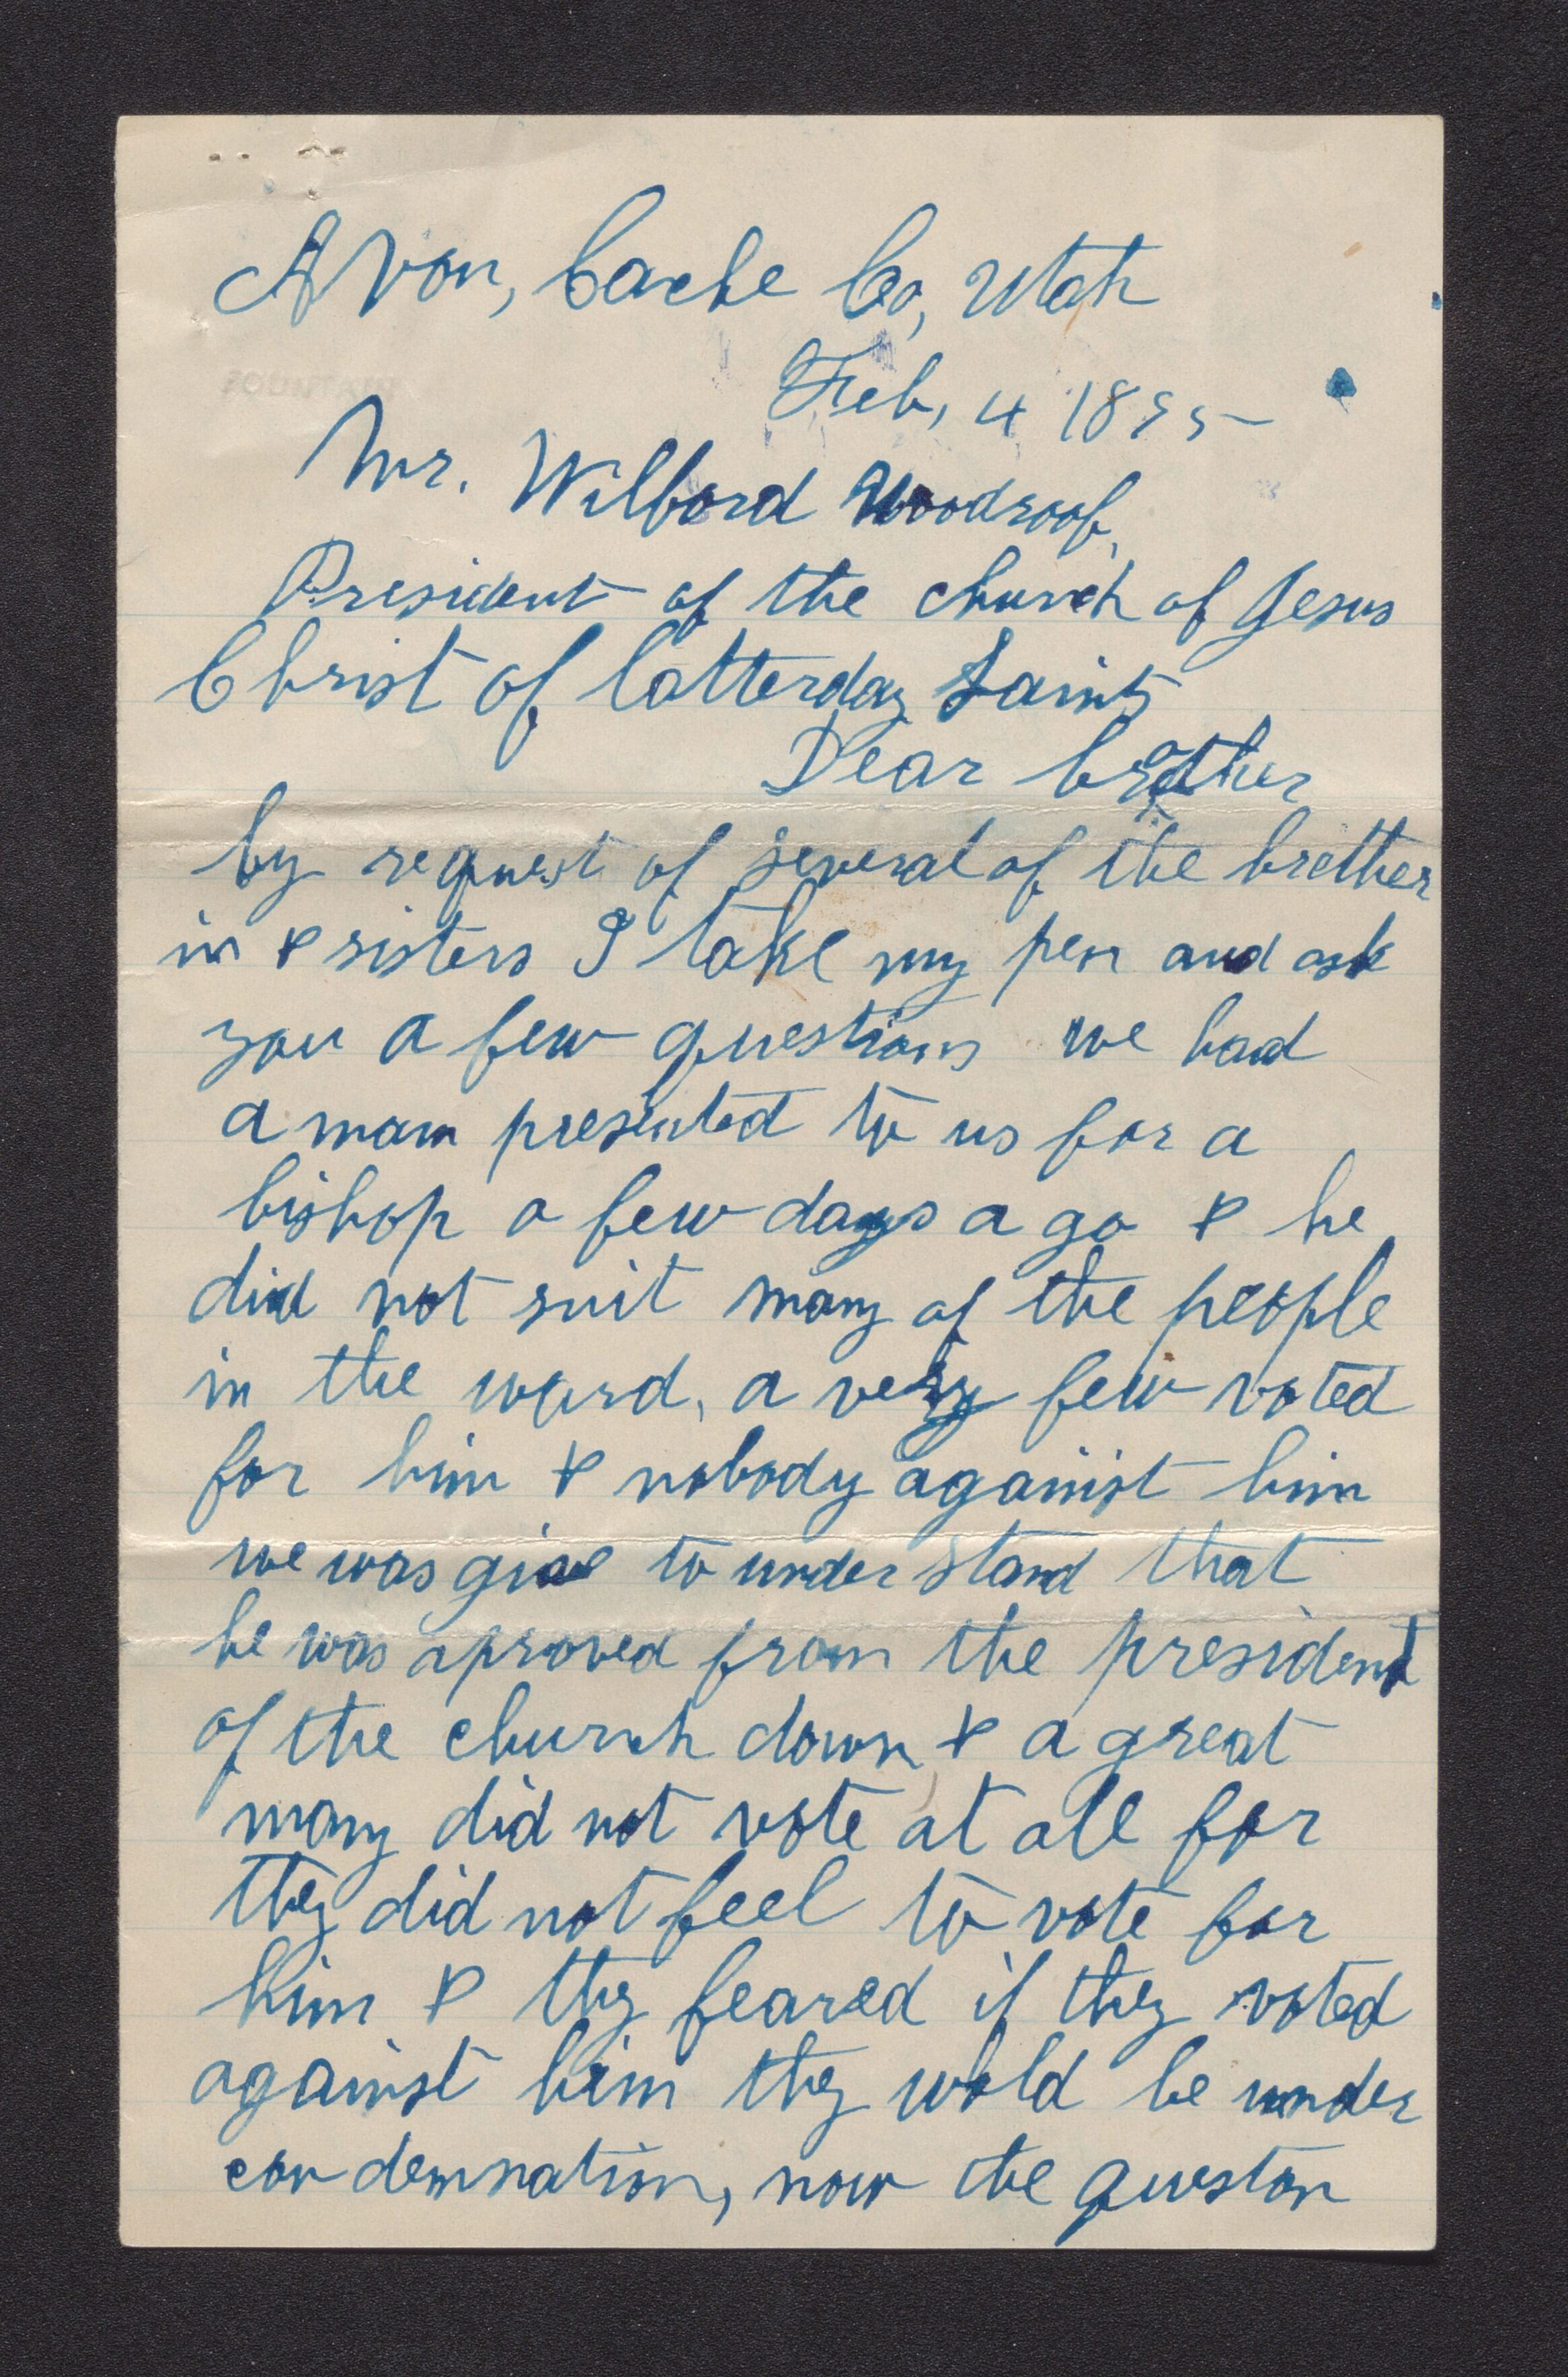 Avon, Cache Co, Utah
Feb, 4 1895
Mr. Wilford Woodroof,
President of the church of Jesus
Christ of latterday Saints
Dear brother
by request of several of the brether
in & sisters I take my pen and ask
you a few questions we had
a man presented to us for a
bishop a few days a go & he
did not suit many of the people
in the ward, a very few voted
for him & nobody against him
we was give to under stand that
he was aproved from the president
of the church down & a great
many did not vote at all for
they did not feel to vote for
him & thy feared if they voted
against him they wold be under
con demnation, now the queston